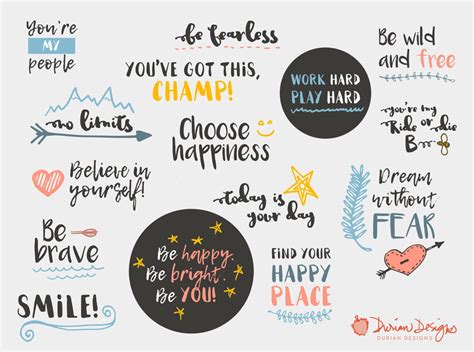 You're
MY
people
be fearless
Be wild
and free
YOU'VE GOT THIS,
CHAMP!
WORK HARD
PLAY HARD
no limits
Choose
happiness
you're my
Ride or die
B
Believe in
yourself!
today is
your day
Dream
without
FEAR
Be
brave
Be happy.
Be bright.
Be YOU!
FIND YOUR
HAPPY
PLACE
SMILE!
Durian Designs
DURIAN DESIGNS